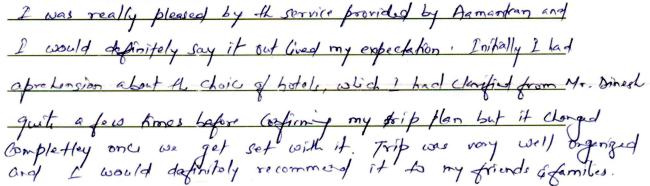 I was really pleased by the service provided by Aamantran and
I would definitely say it out lived my expectation. Initially I had
aprehension about the choic of hotels, which I had clarified from Mr. Dinesh
quite a few times before confirming my trip plan but it changed
completley once we get set with it. Trip was very well organized
and I would definitely recommend it to my friends & families.